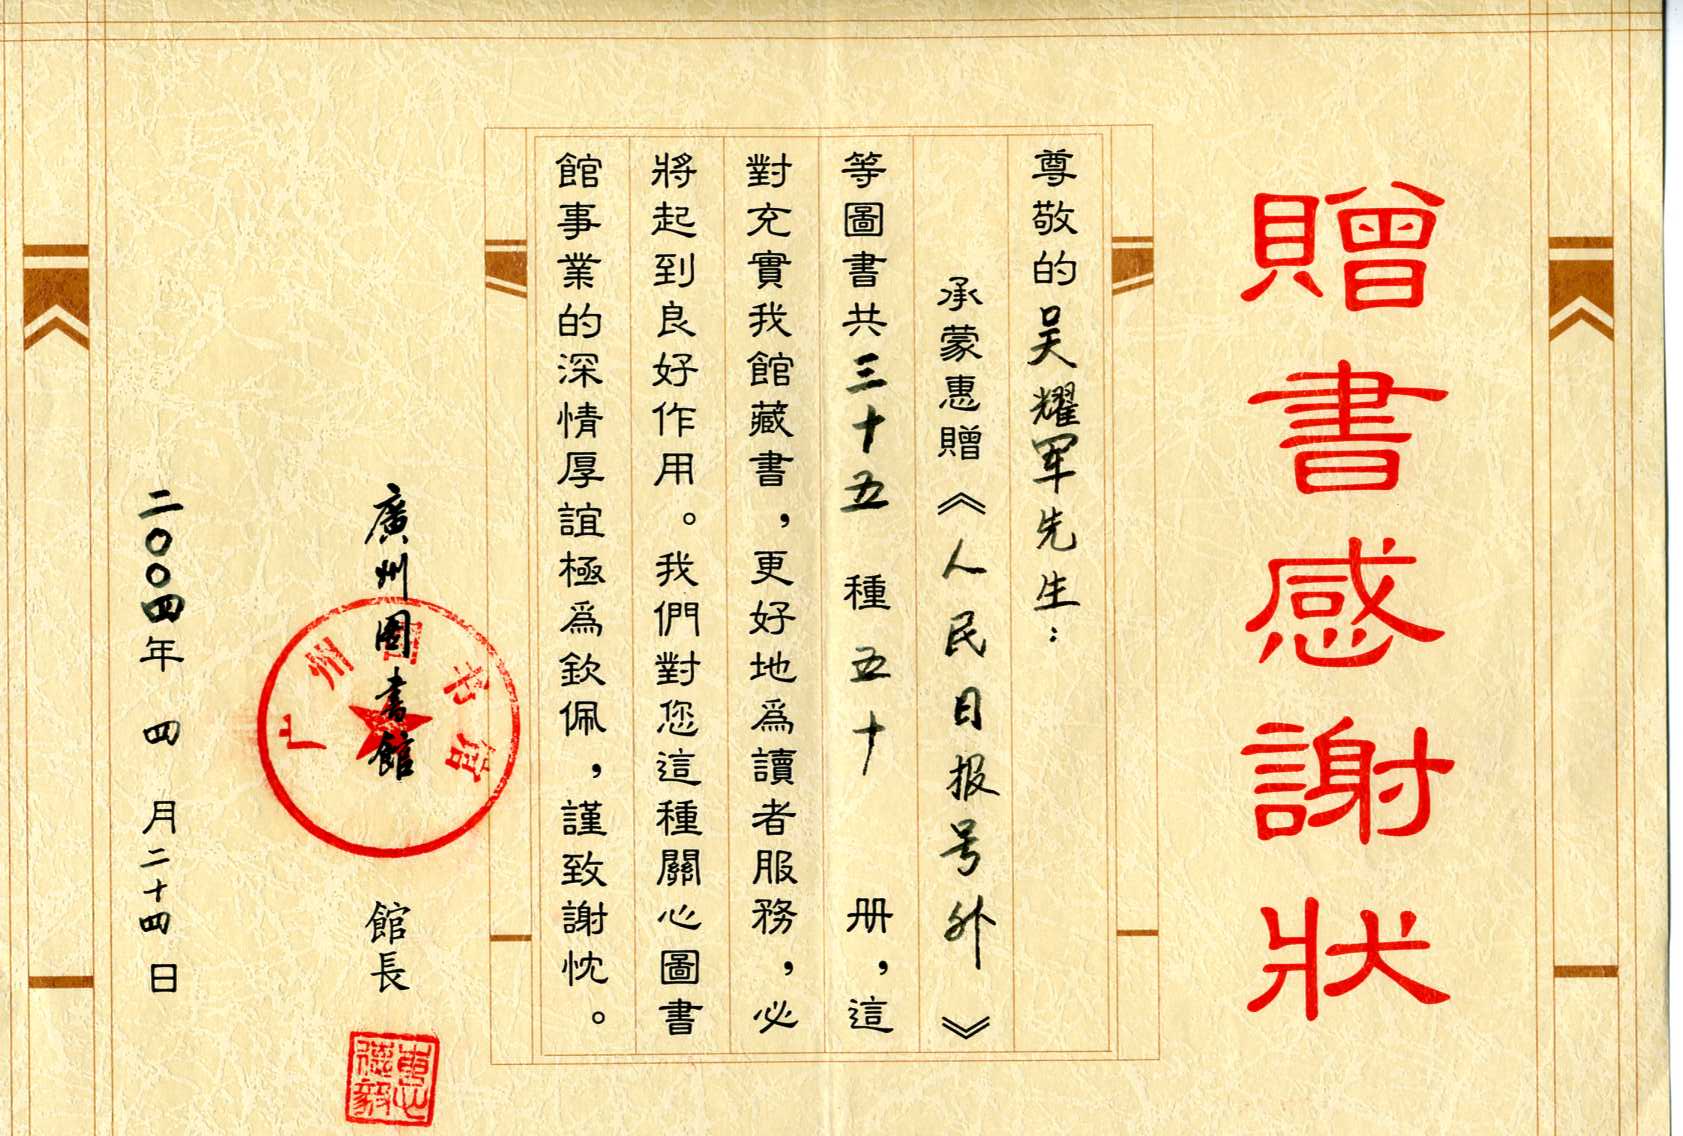 贈書感謝狀
尊敬的吴耀軍先生：
承蒙惠贈《人民日报号外》
等圖書共三十五種五十册，這
對充實我館藏書，更好地為讀者服務，必
將起到良好作用。我們對您這種關心圖書
館事業的深情厚誼極為欽佩，謹致謝忱。
廣州图書館
广州图书馆
館長
惠德毅
二〇〇四年四月二十四日